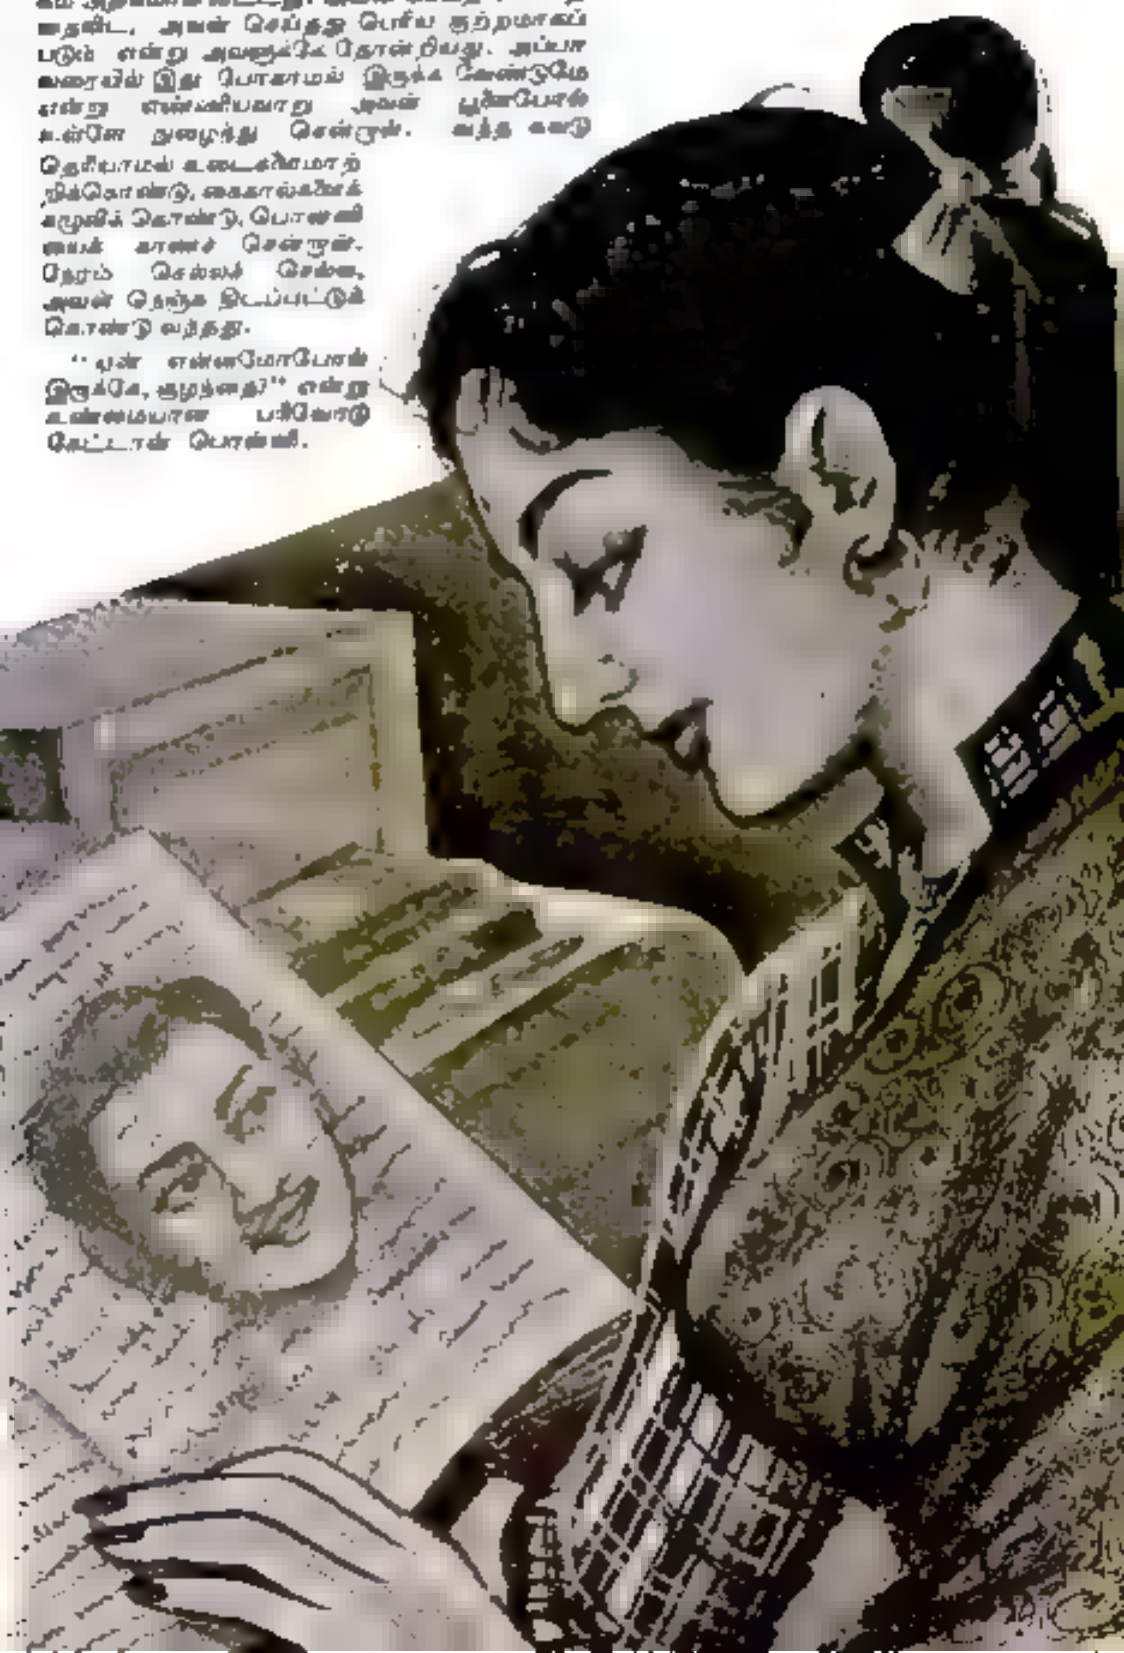 தைவிட, அவள் செய்தது பெரிய குற்றமாகப்
படும் என்று அவளுக்கே தோன்றியது. அப்பா
வரையில் இது போகாமல் இருக்க வேண்டுமே
என்று எண்ணியவாறு அவள் பூனைபோல்
உள்ளே நுழைந்து சென்றாள். வந்த சுவடு
தெரியாமல் உடைகளைமாற்
றிக்கொண்டு, கைகால்களைக்
கழுவிக் கொண்டு, பொன்னி
யைக் காணச் சென்றாள்.
நேரம் செல்லச் செல்ல,
அவள் நெஞ்சு திடப்பட்டுக்
கொண்டு வந்தது.
"ஏன் என்னமோபோல்
இருக்கே, குழந்தை?" என்று
உண்மையான பரிவோடு
கேட்டாள் பொன்னி.